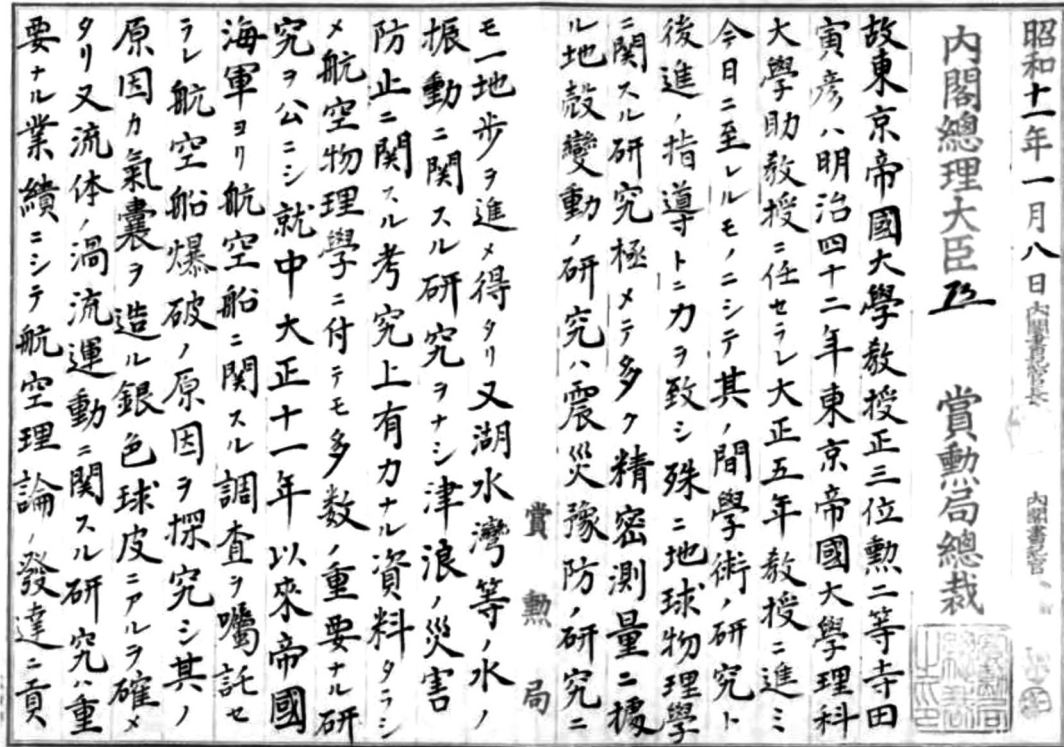 昭和十一年一月八日 内閣書記官長 内閣書記官
内閣總理大臣 賞勲局總裁
故東京帝國大學教授正三位勲二等寺田
寅彦ハ明治四十二年東京帝國大學理科
大學助教授ニ任セラレ大正五年教授ニ進ミ
今日ニ至レルモノニシテ其ノ間學術ノ研究ト
後進ノ指導トニ力ヲ致シ殊ニ地球物理學
ニ関スル研究極メテ多ク精密測量ニ據
ル地殻變動ノ研究ハ震災豫防ノ研究ニ
賞勲局
モ一地歩ヲ進メ得タリ又湖水灣等ノ水ノ
振動ニ関スル研究ヲナシ津浪ノ災害
防止ニ関スル考究上有力ナル資料タラシ
メ航空物理學ニ付テモ多数ノ重要ナル研
究ヲ公ニシ就中大正十一年以來帝國
海軍ヨリ航空船ニ関スル調査ヲ囑託セ
ラレ航空船爆破ノ原因ヲ探究シ其ノ
原因カ氣嚢ヲ造ル銀色球皮ニアルヲ確メ
タリ又流体ノ渦流運動ニ関スル研究ハ重
要ナル業績ニシテ航空理論ノ發達ニ貢